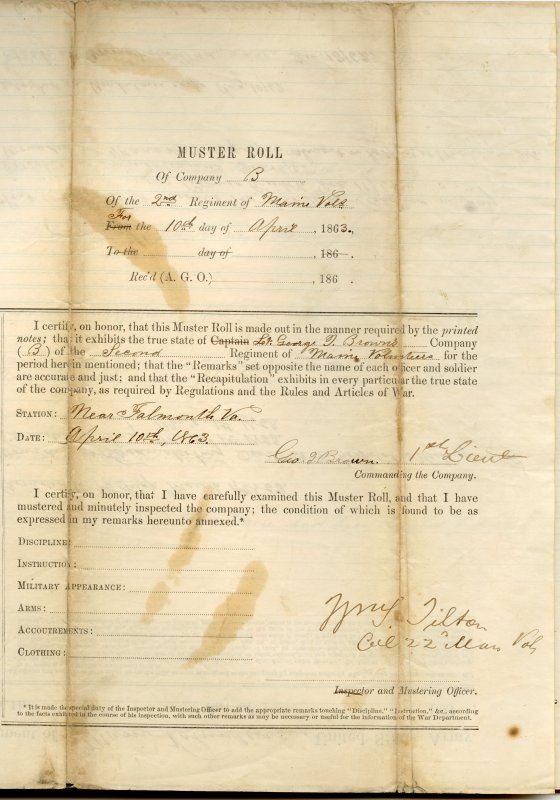 MUSTER ROLL
Of Company B
Of the 2nd Regiment of Maine Vols
For
From the 10th day of April, 1863.
To the day of, 186 .
Rec'd (A. G. O.), 186 .
I certify, on honor, that this Muster Roll is made out in the manner required by the printed
notes; that it exhibits the true state of Captain Lt. George F. Brown's Company
(B) of the Second Regiment of Maine Volunteers for the
period herein mentioned; that the "Remarks" set opposite the name of each officer and soldier
are accurate and just; and that the "Recapitulation" exhibits in every particular the true state
of the company, as required by Regulations and the Rules and Articles of War.
STATION: Near Falmouth Va.
DATE: April 10th, 1863.
Geo. F Brown. 1st Lieut
Commanding the Company.
I certify, on honor, that I have carefully examined this Muster Roll, and that I have
mustered and minutely inspected the company; the condition of which is found to be as
expressed in my remarks hereunto annexed.*
DISCIPLINE:
INSTRUCTION:
MILITARY APPEARANCE:
ARMS:
ACCOUTREMENTS:
CLOTHING:
Wm S. Tilton
Col 22d Mass Vols
Inspector and Mustering Officer.
* It is made the special duty of the Inspector and Mustering Officer to add the appropriate remarks touching "Discipline," "Instruction," &c., according
to the facts exhibited in the course of his inspection, with such other remarks as may be necessary or useful for the information of the War Department.